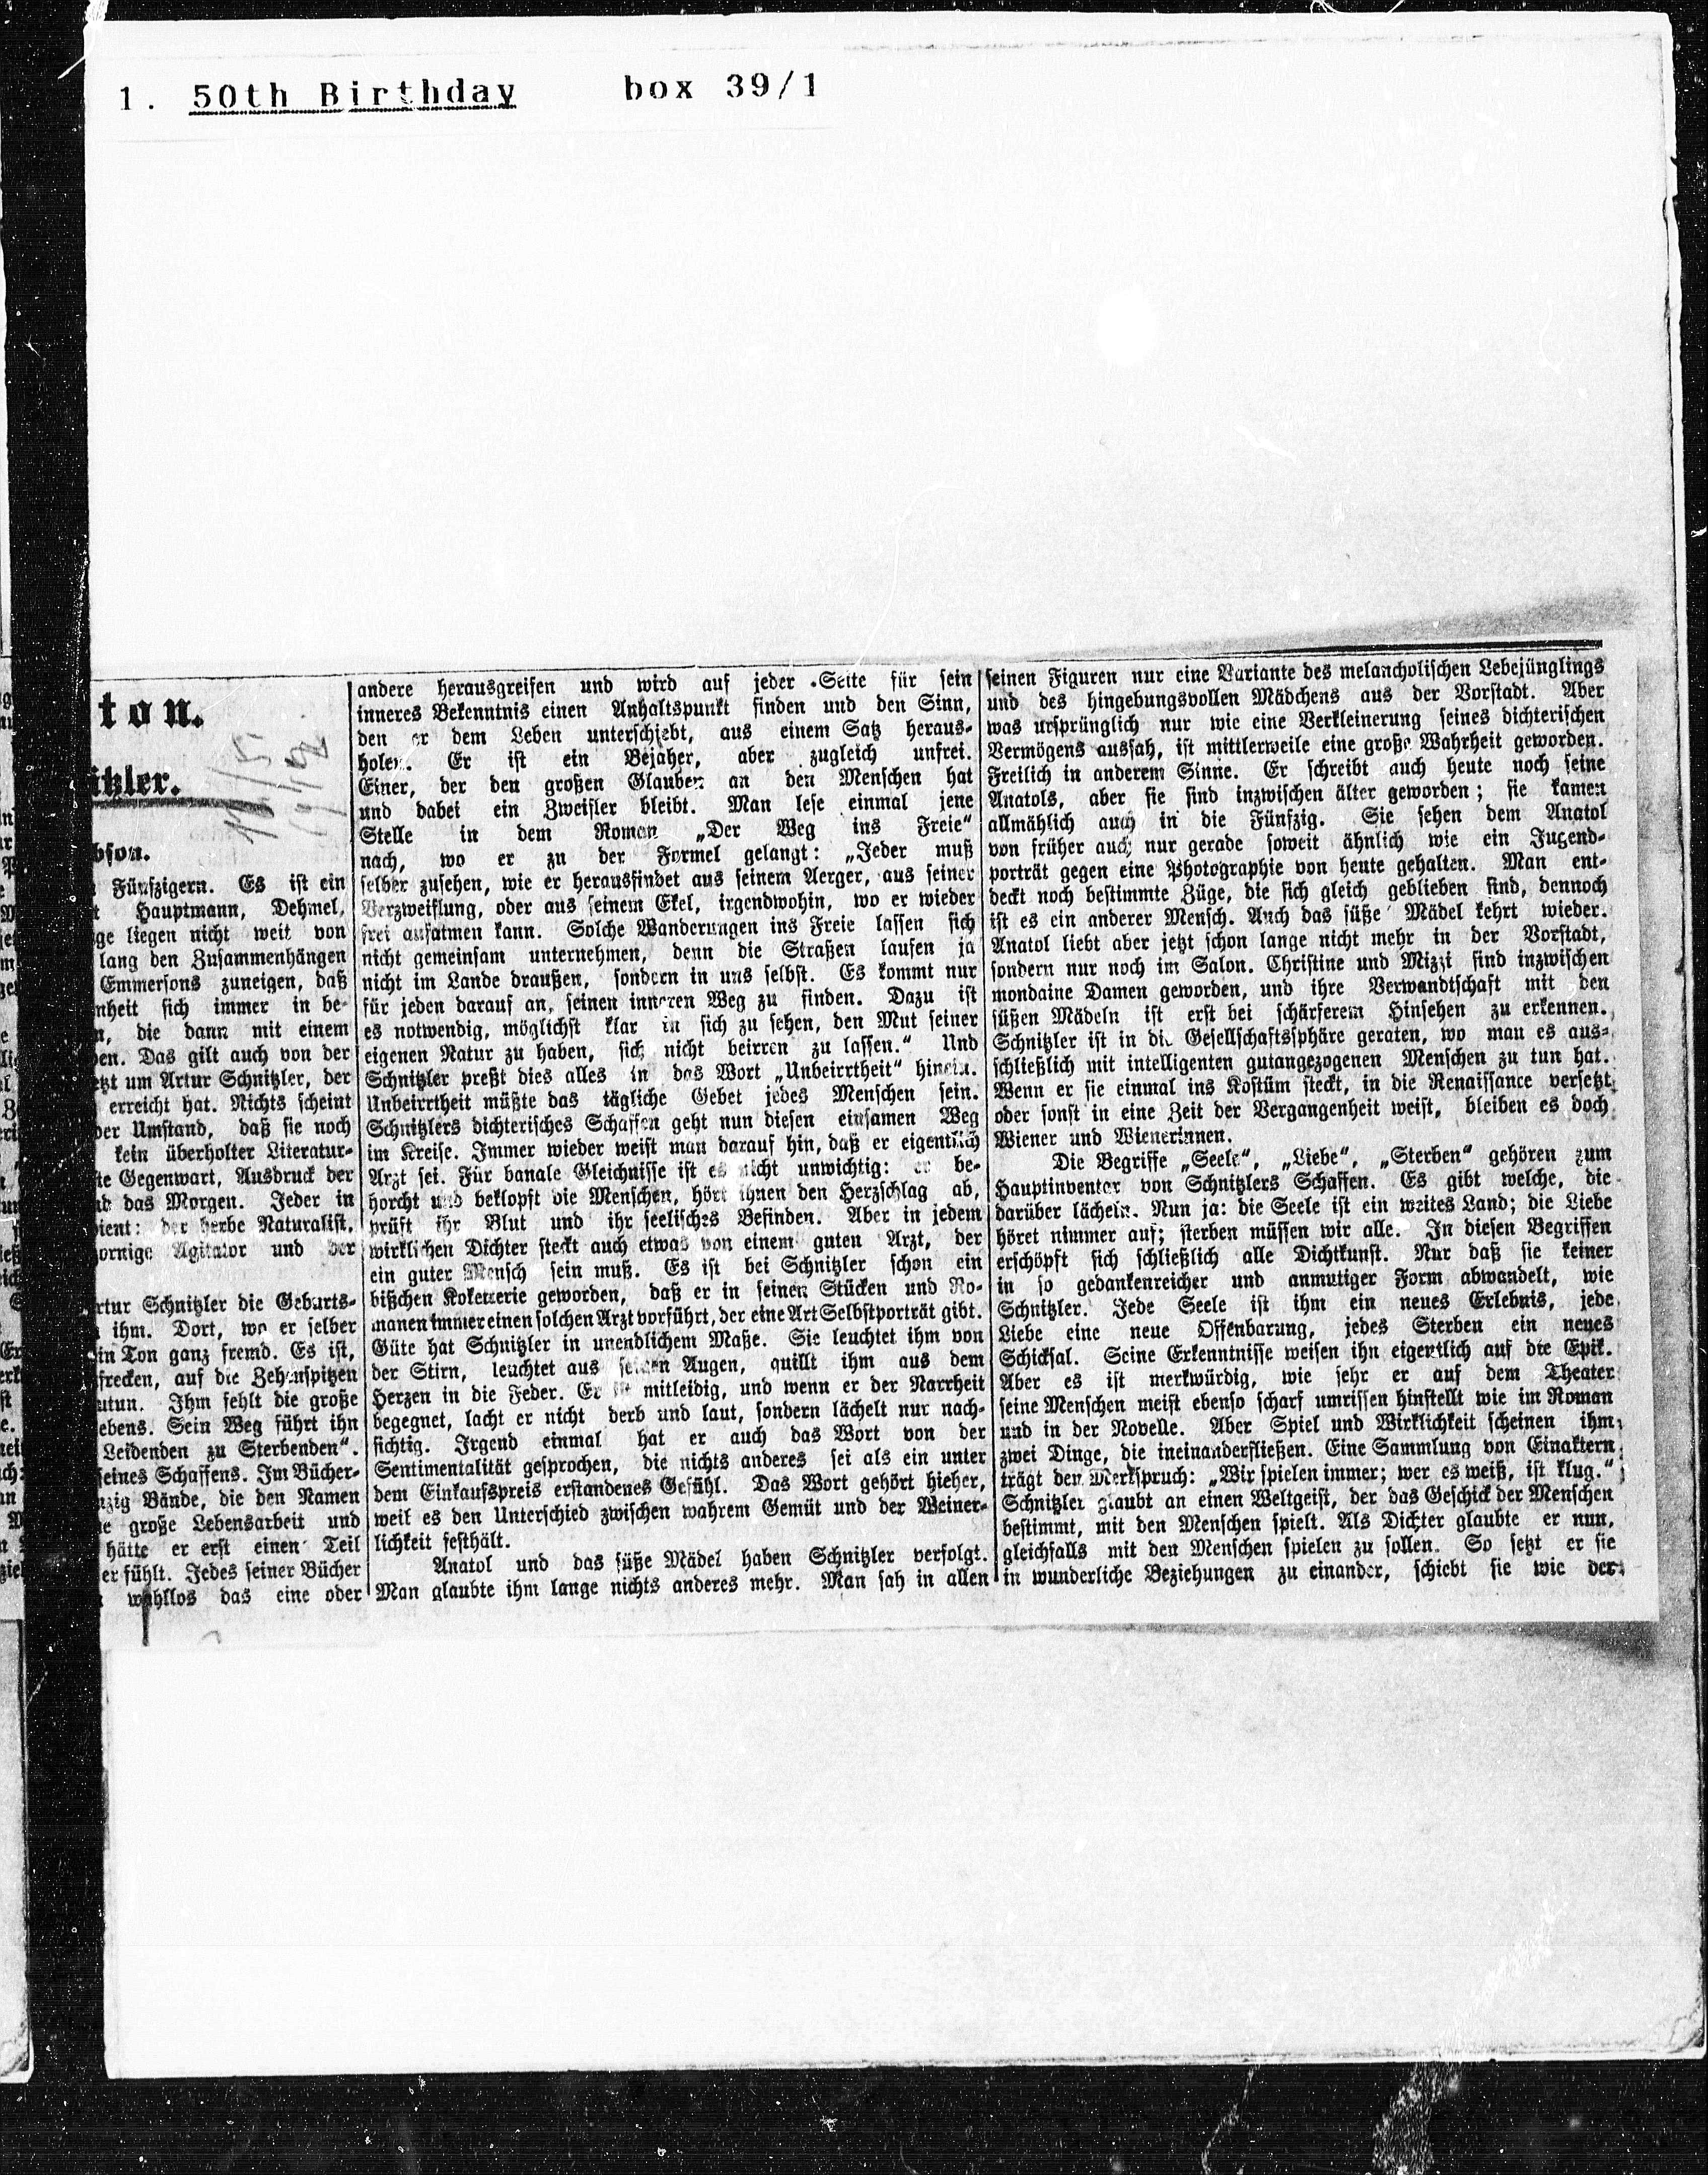 1. 50th Birthday box 39/1
ton.
itzler.
bson.
Fünfzigern. Es ist ein
Hauptmann, Dehmel,
ge liegen nicht weit von
lang den Zusammenhängen
Emmersons zuneigen, daß
nheit sich immer in be-
n, die dann mit einem
en. Das gilt auch von der
etzt um Artur Schnitzler, der
erreicht hat. Nichts scheint
der Umstand, daß sie noch
kein überholter Literatur-
te Gegenwart, Ausdruck der
das Morgen. Jeder in
dient: der herbe Naturalist,
zornige Agitator und der
rtur Schnitzler die Geburts-
ihm. Dort, wo er selber
in Ton ganz fremd. Es ist,
frecken, auf die Zehenspitzen
utun. Ihm fehlt die große
ebens. Sein Weg führt ihn
Leidenden zu Sterbenden“.
seines Schaffens. Im Bücher-
nzig Bände, die den Namen
e große Lebensarbeit und
hätte er erst einen Teil
er fühlt. Jedes seiner Bücher
wahllos das eine oder
andere herausgreifen und wird auf jeder Seite für sein
inneres Bekenntnis einen Anhaltspunkt finden und den Sinn,
den er dem Leben unterschiebt, aus einem Satz heraus-
holen. Er ist ein Bejaher, aber zugleich unfrei.
Einer, der den großen Glauben an den Menschen hat
und dabei ein Zweifler bleibt. Man lese einmal jene
Stelle in dem Roman „Der Weg ins Freie“
nach, wo er zu der Formel gelangt: „Jeder muß
selber zusehen, wie er herausfindet aus seinem Aerger, aus seiner
Verzweiflung, oder aus seinem Ekel, irgendwohin, wo er wieder
frei aufatmen kann. Solche Wanderungen ins Freie lassen sich
nicht gemeinsam unternehmen, denn die Straßen laufen ja
nicht im Lande draußen, sondern in uns selbst. Es kommt nur
für jeden darauf an, seinen inneren Weg zu finden. Dazu ist
es notwendig, möglichst klar in sich zu sehen, den Mut seiner
eigenen Natur zu haben, sich nicht beirren zu lassen.“ Und
Schnitzler preßt dies alles in das Wort „Unbeirrtheit“ hinein.
Unbeirrtheit müßte das tägliche Gebet jedes Menschen sein.
Schnitzlers dichterisches Schaffen geht nun diesen einsamen Weg
im Kreise. Immer wieder weist man darauf hin, daß er eigentlich
Arzt sei. Für banale Gleichnisse ist es nicht unwichtig: er be-
horcht und beklopft die Menschen, hört ihnen den Herzschlag ab,
prüft ihr Blut und ihr seelisches Befinden. Aber in jedem
wirklichen Dichter steckt auch etwas von einem guten Arzt, der
ein guter Mensch sein muß. Es ist bei Schnitzler schon ein
bißchen Koketterie geworden, daß er in seinen Stücken und Ro-
manen immer einen solchen Arzt vorführt, der eine Art Selbstporträt gibt.
Güte hat Schnitzler in unendlichem Maße. Sie leuchtet ihm von
der Stirn, leuchtet aus seinen Augen, quillt ihm aus dem
Herzen in die Feder. Er ist mitleidig, und wenn er der Narrheit
begegnet, lacht er nicht derb und laut, sondern lächelt nur nach-
sichtig. Irgend einmal hat er auch das Wort von der
Sentimentalität gesprochen, die nichts anderes sei als ein unter
dem Einkaufspreis erstandenes Gefühl. Das Wort gehört hieher,
weil es den Unterschied zwischen wahrem Gemüt und der Weiner-
lichkeit festhält.
Anatol und das süße Mädel haben Schnitzler verfolgt.
Man glaubte ihm lange nichts anderes mehr. Man sah in allen
seinen Figuren nur eine Variante des melancholischen Lebejünglings
und des hingebungsvollen Mädchens aus der Vorstadt. Aber
was ursprünglich nur wie eine Verkleinerung seines dichterischen
Vermögens aussah, ist mittlerweile eine große Wahrheit geworden.
Freilich in anderem Sinne. Er schreibt auch heute noch seine
Anatols, aber sie sind inzwischen älter geworden; sie kamen
allmählich auch in die Fünfzig. Sie sehen dem Anatol
von früher auch nur gerade soweit ähnlich wie ein Jugend-
porträt gegen eine Photographie von heute gehalten. Man ent-
deckt noch bestimmte Züge, die sich gleich geblieben sind, dennoch
ist es ein anderer Mensch. Auch das süße Mädel kehrt wieder.
Anatol liebt aber jetzt schon lange nicht mehr in der Vorstadt,
sondern nur noch im Salon. Christine und Mizzi sind inzwischen
mondaine Damen geworden, und ihre Verwandtschaft mit den
süßen Mädeln ist erst bei schärferem Hinsehen zu erkennen.
Schnitzler ist in die Gesellschaftssphäre geraten, wo man es aus-
schließlich mit intelligenten gutangezogenen Menschen zu tun hat.
Wenn er sie einmal ins Kostüm steckt, in die Renaissance versetzt
oder sonst in eine Zeit der Vergangenheit weist, bleiben es doch
Wiener und Wienerinnen.
Die Begriffe „Seele“, „Liebe“, „Sterben“ gehören zum
Hauptinventar von Schnitzlers Schaffen. Es gibt welche, die
darüber lächeln. Nun ja: die Seele ist ein weites Land; die Liebe
höret nimmer auf; sterben müssen wir alle. In diesen Begriffen
erschöpft sich schließlich alle Dichtkunst. Nur daß sie keiner
in so gedankenreicher und anmutiger Form abwandelt, wie
Schnitzler. Jede Seele ist ihm ein neues Erlebnis, jede
Liebe eine neue Offenbarung, jedes Sterben ein neues
Schicksal. Seine Erkenntnisse weisen ihn eigentlich auf die Epik.
Aber es ist merkwürdig, wie sehr er auf dem Theater
seine Menschen meist ebenso scharf umrissen hinstellt wie im Roman
und in der Novelle. Aber Spiel und Wirklichkeit scheinen ihm
zwei Dinge, die ineinanderfließen. Eine Sammlung von Einaktern
trägt den Merkspruch: „Wir spielen immer; wer es weiß, ist klug.“
Schnitzler glaubt an einen Weltgeist, der das Geschick der Menschen
bestimmt, mit den Menschen spielt. Als Dichter glaubte er nun,
gleichfalls mit den Menschen spielen zu sollen. So setzt er sie
in wunderliche Beziehungen zu einander, schiebt sie wie der